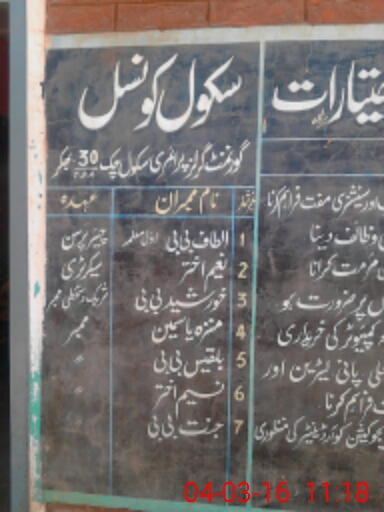 سکول کونسل
گورنمنٹ گرلز پرائمری سکول چک 30 T.D.A بھکر
نمبر شمار نام ممبران عہدہ
1 الطاف بی بی اول معلمہ چیئر پرسن
2 نعیم اختر سیکرٹری
3 خورشید بی بی شریک دستخطی ممبر
4 منزہ یاسمین ممبر
5 بلقیس بی بی "
6 نسیم اختر "
7 جنت بی بی "
اختیارات
اور سٹیشنری مفت فراہم کرنا
وظائف دینا
مرمت کرانا
پر ضرورت ہو
کمپیوٹر کی خریداری
پانی لیٹرین اور
فراہم کرنا
ایجوکیشن کوآرڈینیٹر کی منظوری
04-03-16 11:18